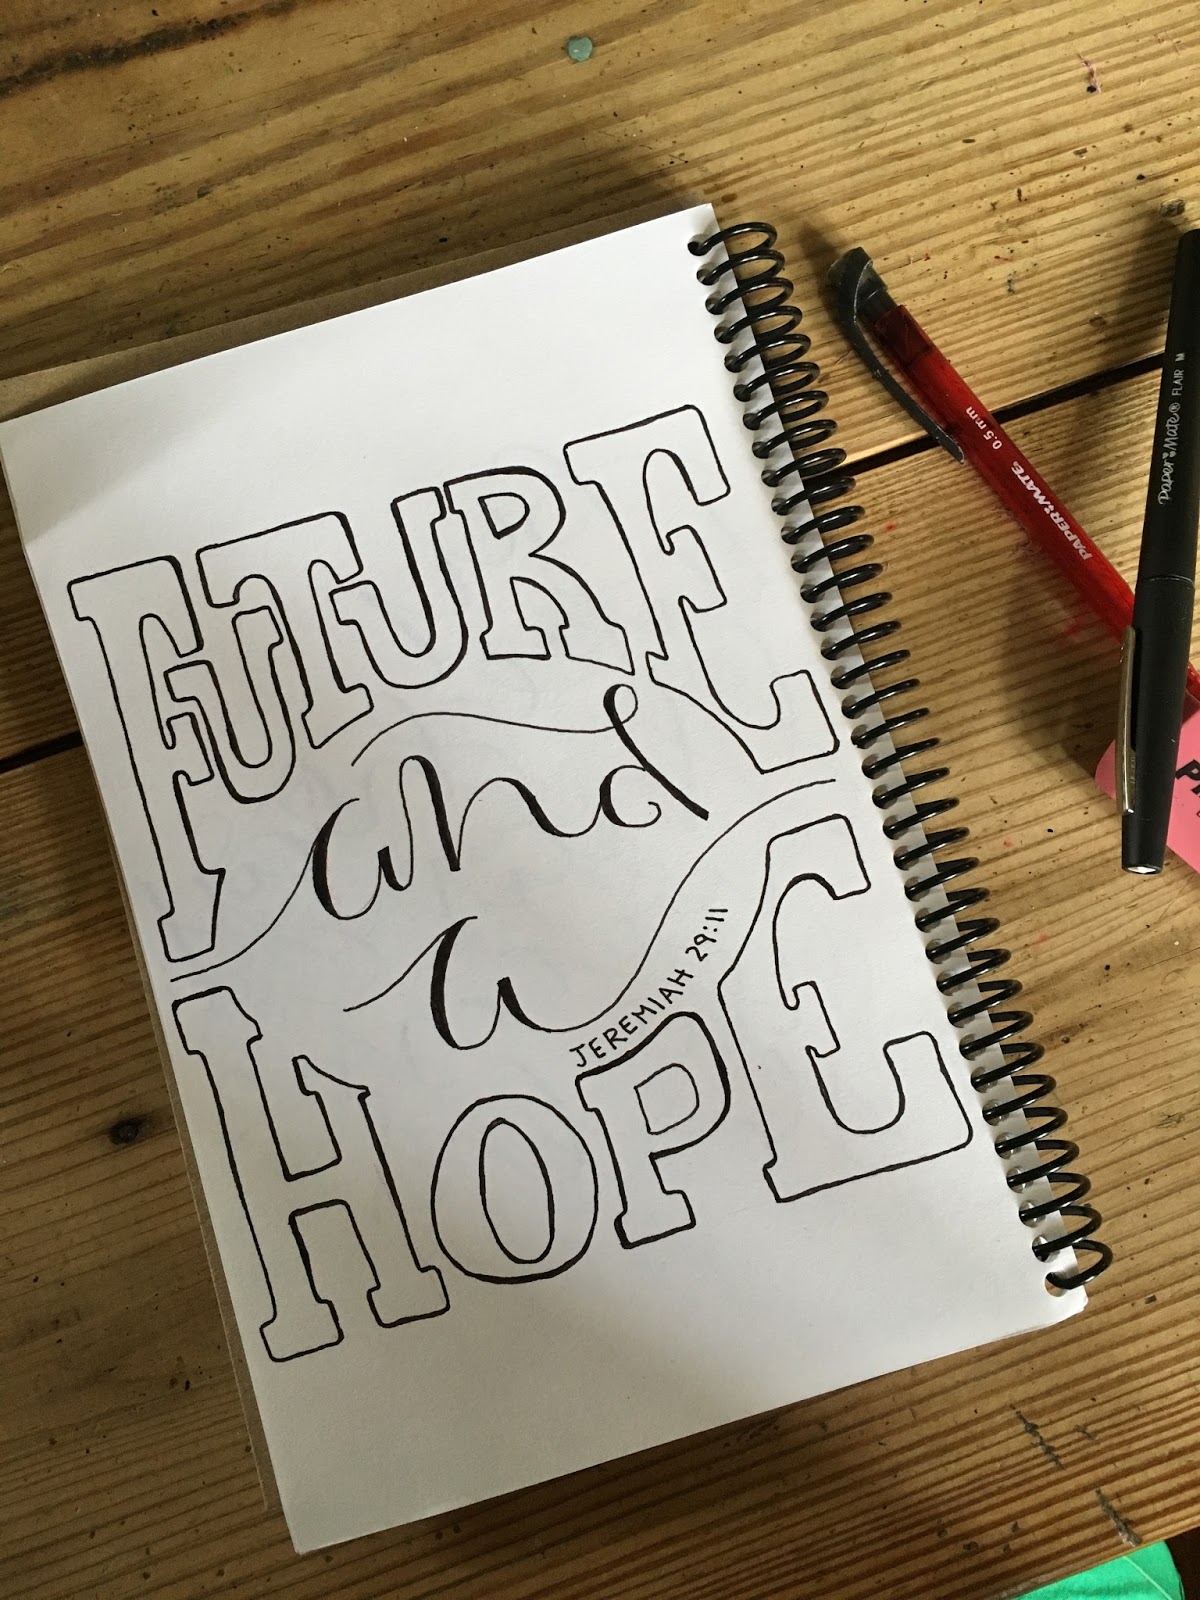 FUTURE
and
a
JEREMIAH 29:11
HOPE
PAPER MATE® 0.5 mm
Paper Mate® FLAIR M